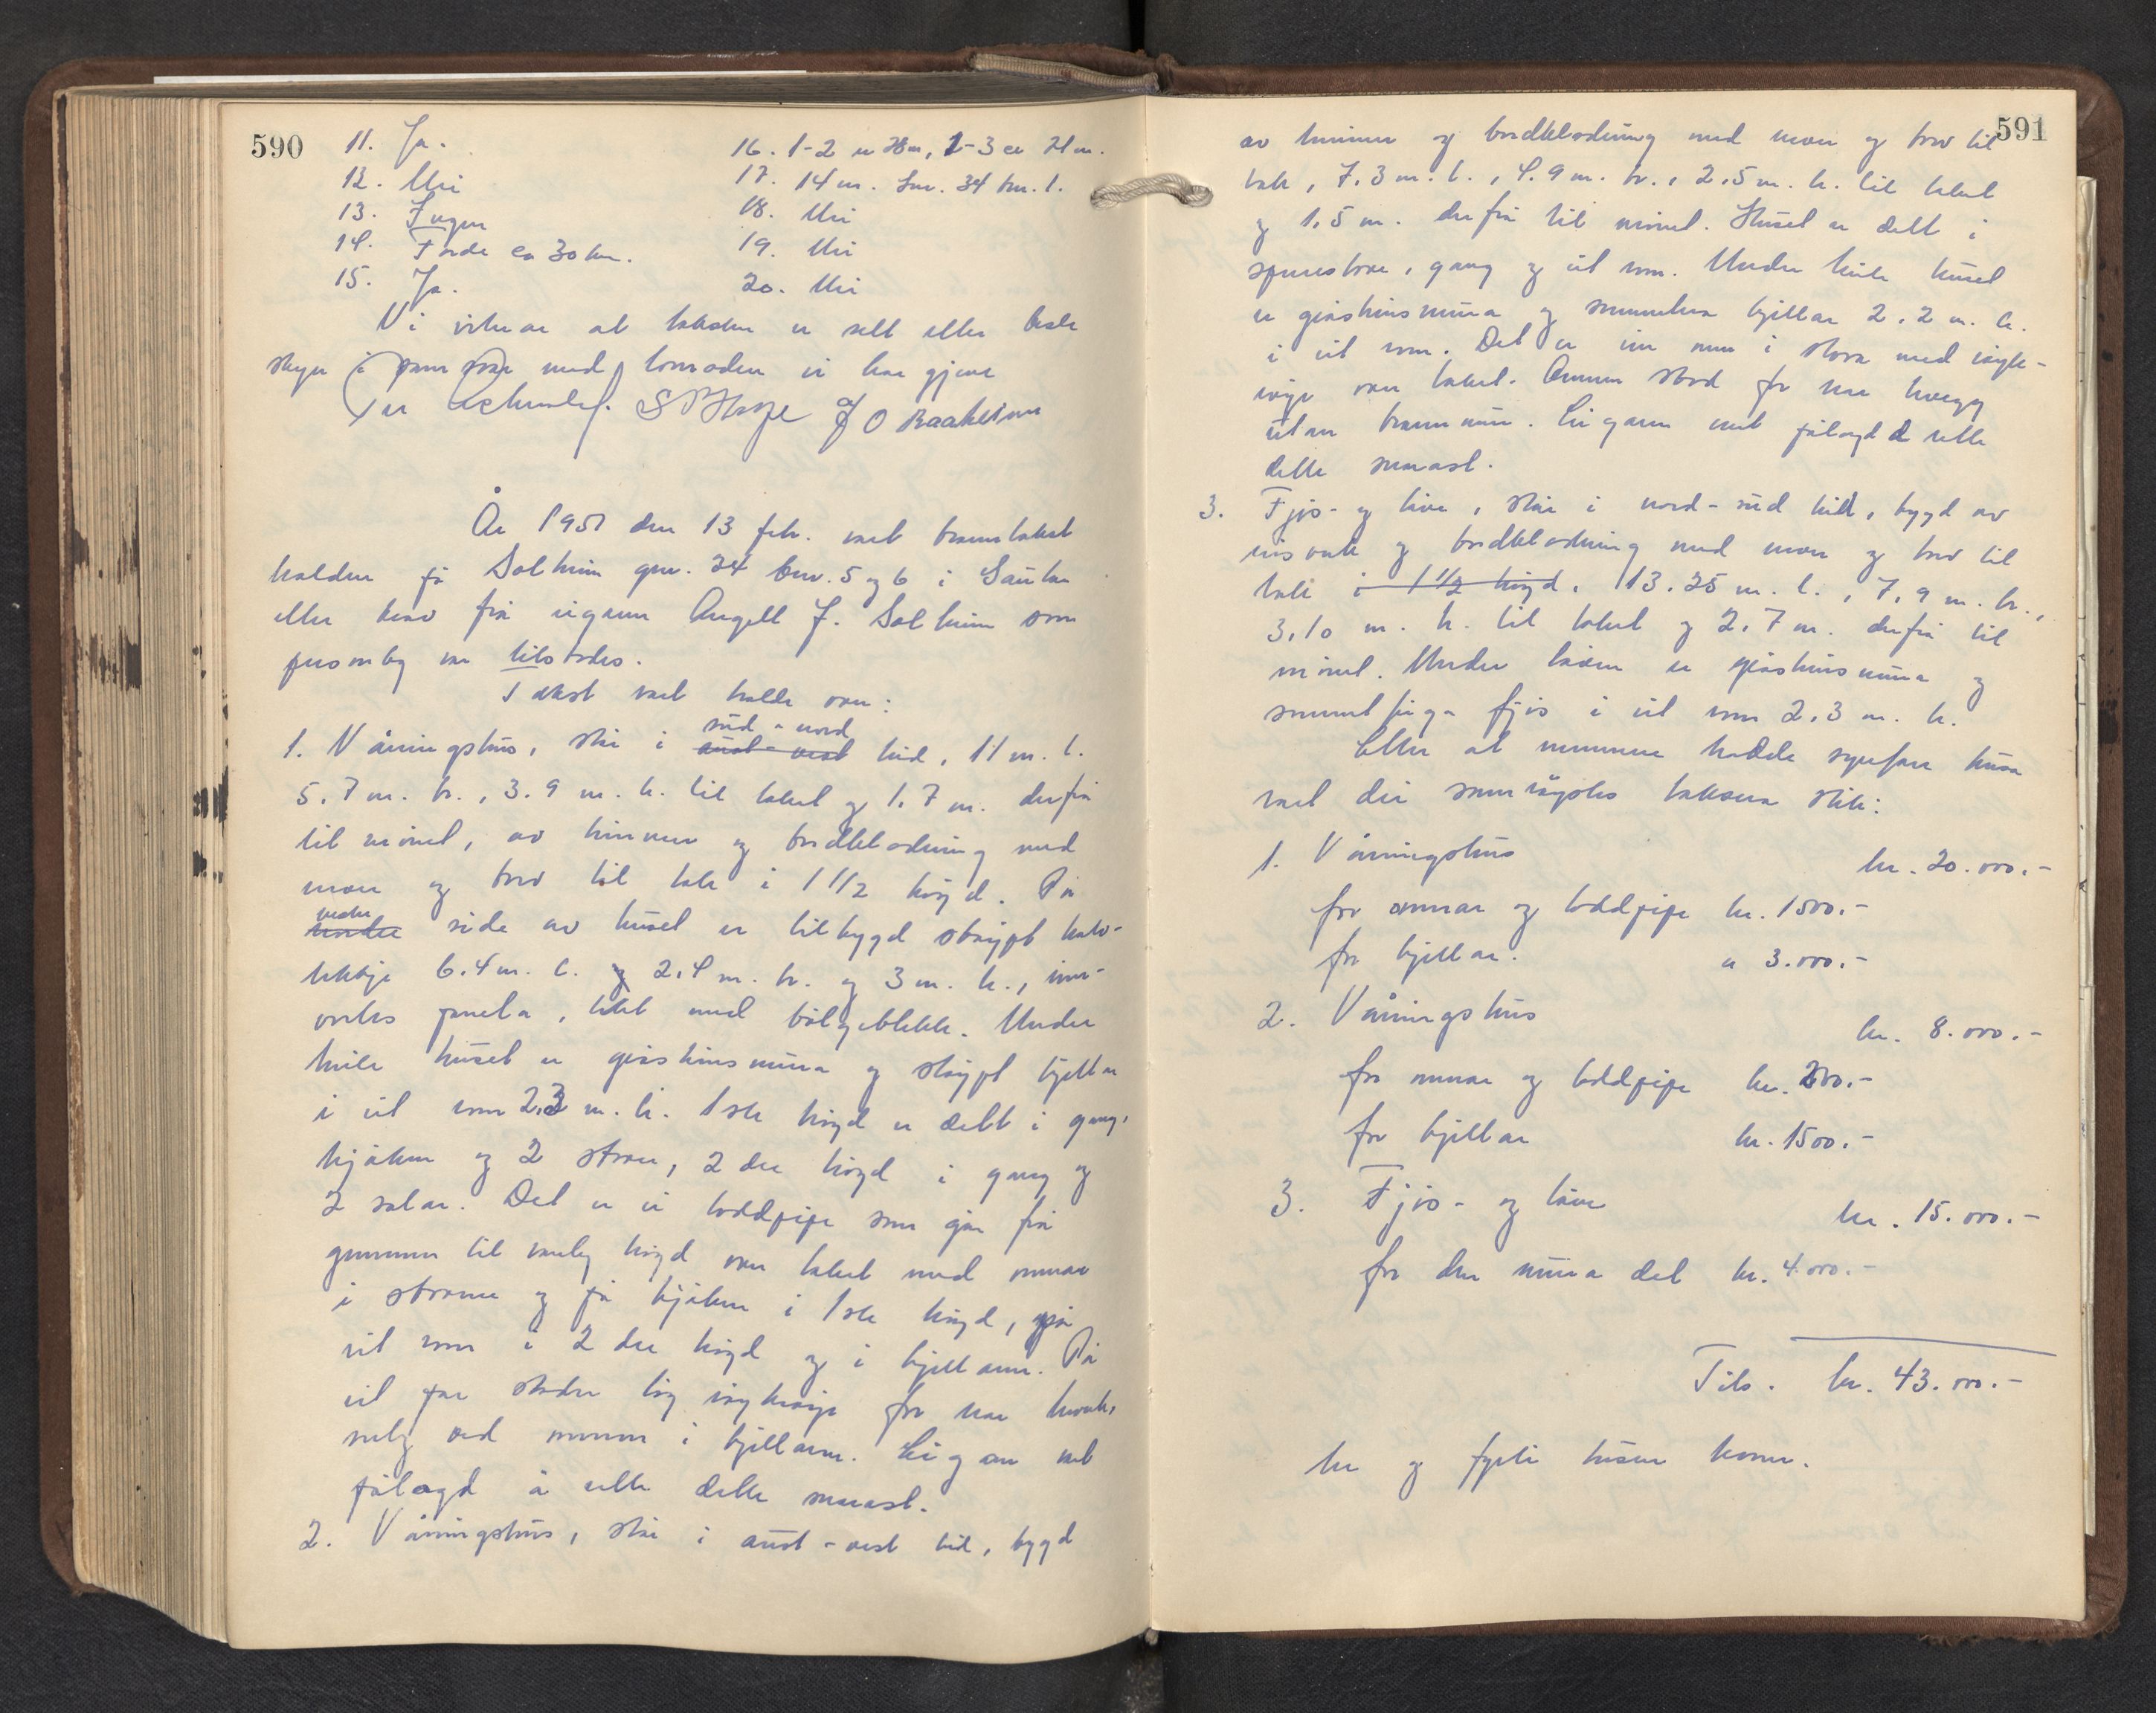 590
11. Ja.
12. Nei
13. Ingen
14. Førde ca 30 km.
15. Ja.
16. 1-2 er 28 m, 2-3 er 21 m.
17. 14 m. 34 km. l.
18. Nei
19. Nei
20. Nei
Vi vitnar at taksten er sett etter beste
skyn i samsvar med lovnaden vi har gjeve
O Raaheim
År 1951 den 13 febr. vart branntakst
halden på Solheim gnr. 34 bnr. 5 og 6 i
etter krav frå eigaren Angell J. Solheim som
personleg var tilstades.
Takst vart halde over:
1. Våningshus, står i sud - nord
aust - vest leid, 11 m. l.
5.7 m. br., 3.9 m. h. til taket og 1.7 m. derfrå
til mönet, av timmer og bordkledning med
never og torv til tak i 1 1/2 högd. På
vestre
side av huset er tilbygd stöypt halv-
tekkje 6.4 m. l. og 2.4 m. br. og 3 m. h., inn-
vortes panela, tekt med bölgeblekk. Under
heile huset er gråsteinsmura og stöypt kjellar
i eit rom 2.3 m. h. 1ste högd er delt i gang,
kjöken og 2 stover, 2 dre högd i gang og
2 salar. Det er ei loddpipe som går frå
grunnen til vanleg högd over taket med omnar
i stovene og på kjöken i 1ste högd, på
eit rom i 2 dre högd og i kjellaren. På
eit par stader
ved omnen i kjellaren. Eigaren vart
pålagd å rette dette snarast.
2. Våningshus, står i aust - vest leid, bygd
591
av timmer og bordkledning med never og torv til
tak, 7.3 m. l., 4.9 m. br., 2.5 m. h. til taket
og 1.5 m. derfrå til mönet. Huset er delt i
sperrestove, gang og eit rom. Under heile huset
er gråsteinsmura og sementera kjellar 2.2 m. h.
i eit rom. Det er ein omn i stova med
over taket. Omnen stod for nær tvegg
utan brannmur. Eigaren vart pålagd å rette
dette snarast.
3. Fjös- og löve, står i nord - sud leid, bygd av
og bordkledning med never og torv til
tak i 1 1/2 högd. 13.25 m. l., 7.9 m. br.,
3.10 m. h. til taket og 2.7 m. derfrå til
mönet. Under löven er gråsteinsmura og
sementfuga fjös i eit rom 2.3 m. h.
Etter at nemnda hadde synfare husa
vart dei samröystes taksera slik:
1. Våningshus kr. 20.000.-
for omnar og loddpipe kr. 1500.-
for kjellar. " 3.000.-
2. Våningshus kr. 8.000.-
for omnar og loddpipe kr. 200.-
for kjellar kr. 1500.-
3. Fjös- og löve kr. 15.000.-
for den mura del kr. 4.000.-
Tils. kr. 43.000.-
kr og fyrti tusen kroner.